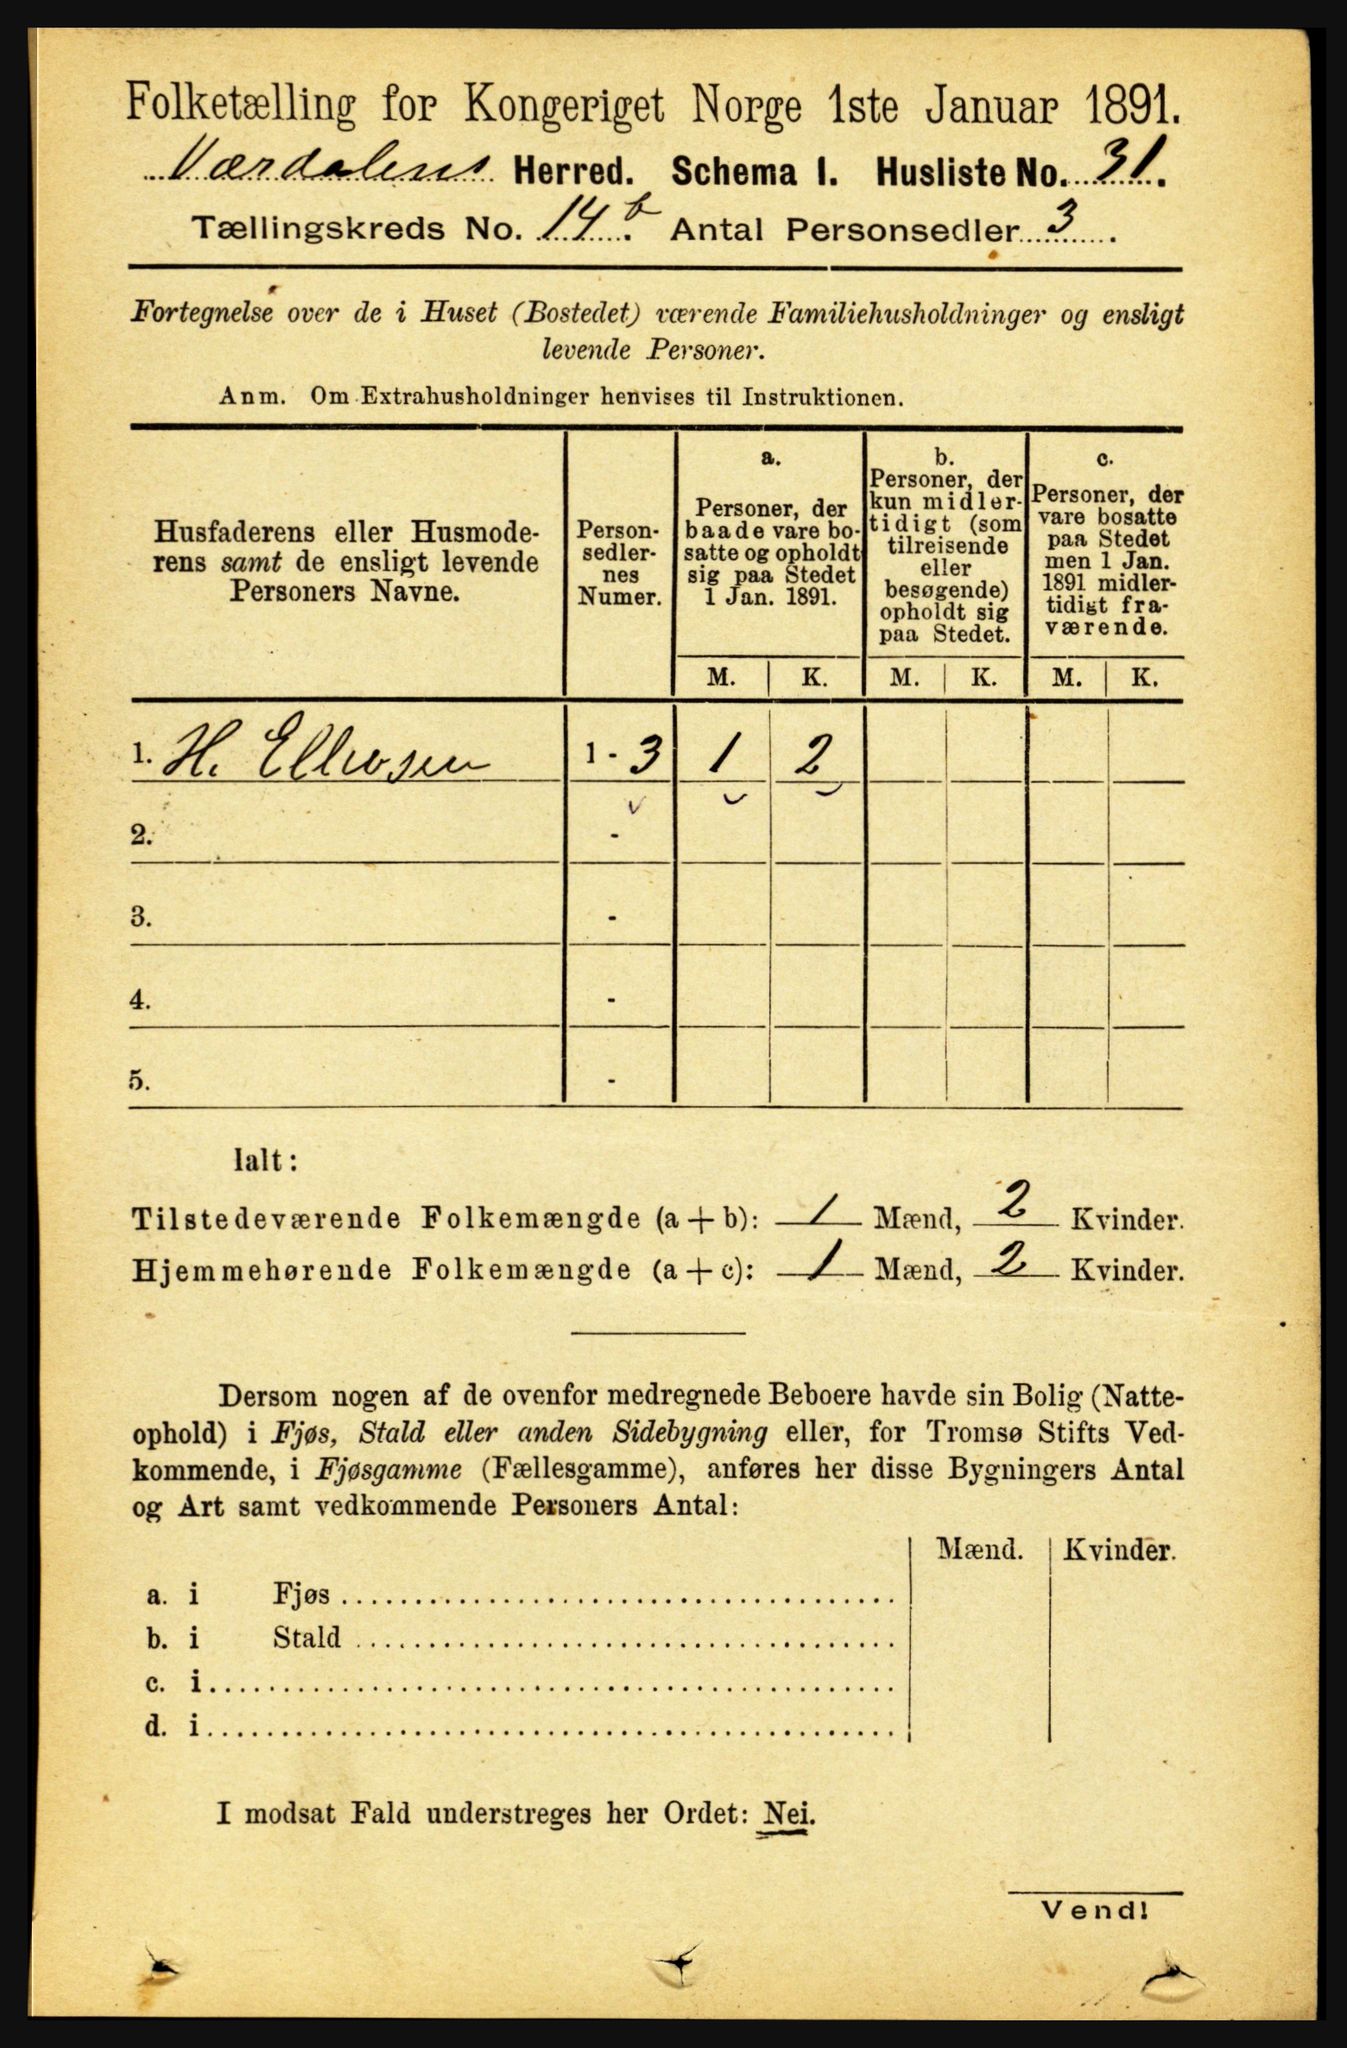 Folketælling for Kongeriget Norge 1ste Januar 1891.
Værdalens Herred. Schema I. Husliste No. 31.
Tællingskreds No. 14 b. Antal Personsedler 3.
Fortegnelse over de i Huset (Bostedet) værende Familiehusholdninger og ensligt
levende Personer.
Anm. Om Extrahusholdninger henvises til Instruktionen.
Husfaderens eller Husmode-
rens samt de ensligt levende
Personers Navne.
Person-
sedler-
nes
Numer.
a.
Personer, der
baade vare bo-
satte og opholdt
sig paa Stedet
1 Jan. 1891.
b.
Personer, der
kun midler-
tidigt (som
tilreisende
eller
besøgende)
opholdt sig
paa Stedet.
c.
Personer, der
vare bosatte
paa Stedet
men 1 Jan.
1891 midler-
tidigt fra-
værende.
M. K. M. K. M. K.
1. H. Ellevsen 1 - 3 1 2
2. -
3. -
4. -
5. -
Ialt:
Tilstedeværende Folkemængde (a + b): 1 Mænd, 2 Kvinder.
Hjemmehørende Folkemængde (a + c): 1 Mænd, 2 Kvinder.
Dersom nogen af de ovenfor medregnede Beboere havde sin Bolig (Natte-
ophold) i Fjøs, Stald eller anden Sidebygning eller, for Tromsø Stifts Ved-
kommende, i Fjøsgamme (Fællesgamme), anføres her disse Bygningers Antal
og Art samt vedkommende Personers Antal:
Mænd. Kvinder.
a. i Fjøs
b. i Stald
c. i
d. i
I modsat Fald understreges her Ordet: Nei.
Vend!